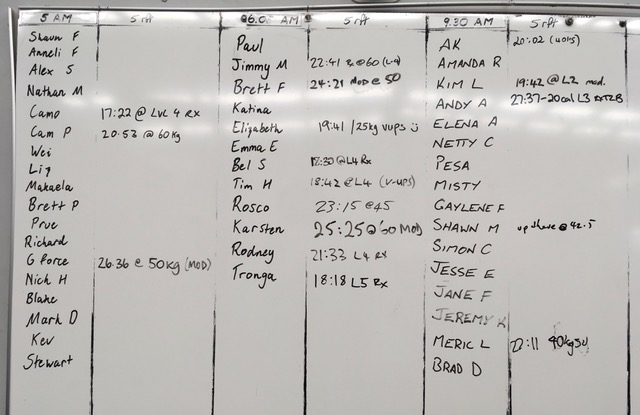 5 AM 5 rft
Shaun F
Anneli F
Alex S
Nathan M
Camo 17:22 @ LVL 4 Rx
Cam P 20:53 @ 60kg
Wei
Liz
Makaela
Brett P
Prue
Richard
G force 26.36 @ 50kg (MOD)
Nick H
Blake
Mark D
Kev
Stewart
06.00 AM 5 rft
Paul
Jimmy M 22:41 Rx@60 (L4)
Brett F 24:21 MOD @ 50
Katina
Elizabeth 19:41 /25kg vups
Emma E
Bel S @L4 Rx
Tim H 18:42 @L4 (V-UPS)
Rosco 23:15 @45
Karsten 25:25@60 MOD
Rodney 21:33 L4 Rx
Tronga 18:18 L5 Rx
9.30 AM 5 rft
AK 20:02
AMANDA R
KIM L 19:42 @ L2 mod.
ANDY A 27:37-20cal L3
ELENA A
NETTY C
PESA
MISTY
GAYLENE F
SHAWN M up there @ 42.5
SIMON C
JESSE E
JANE F
JEREMY
MERIC L :11 40kg
BRAD D